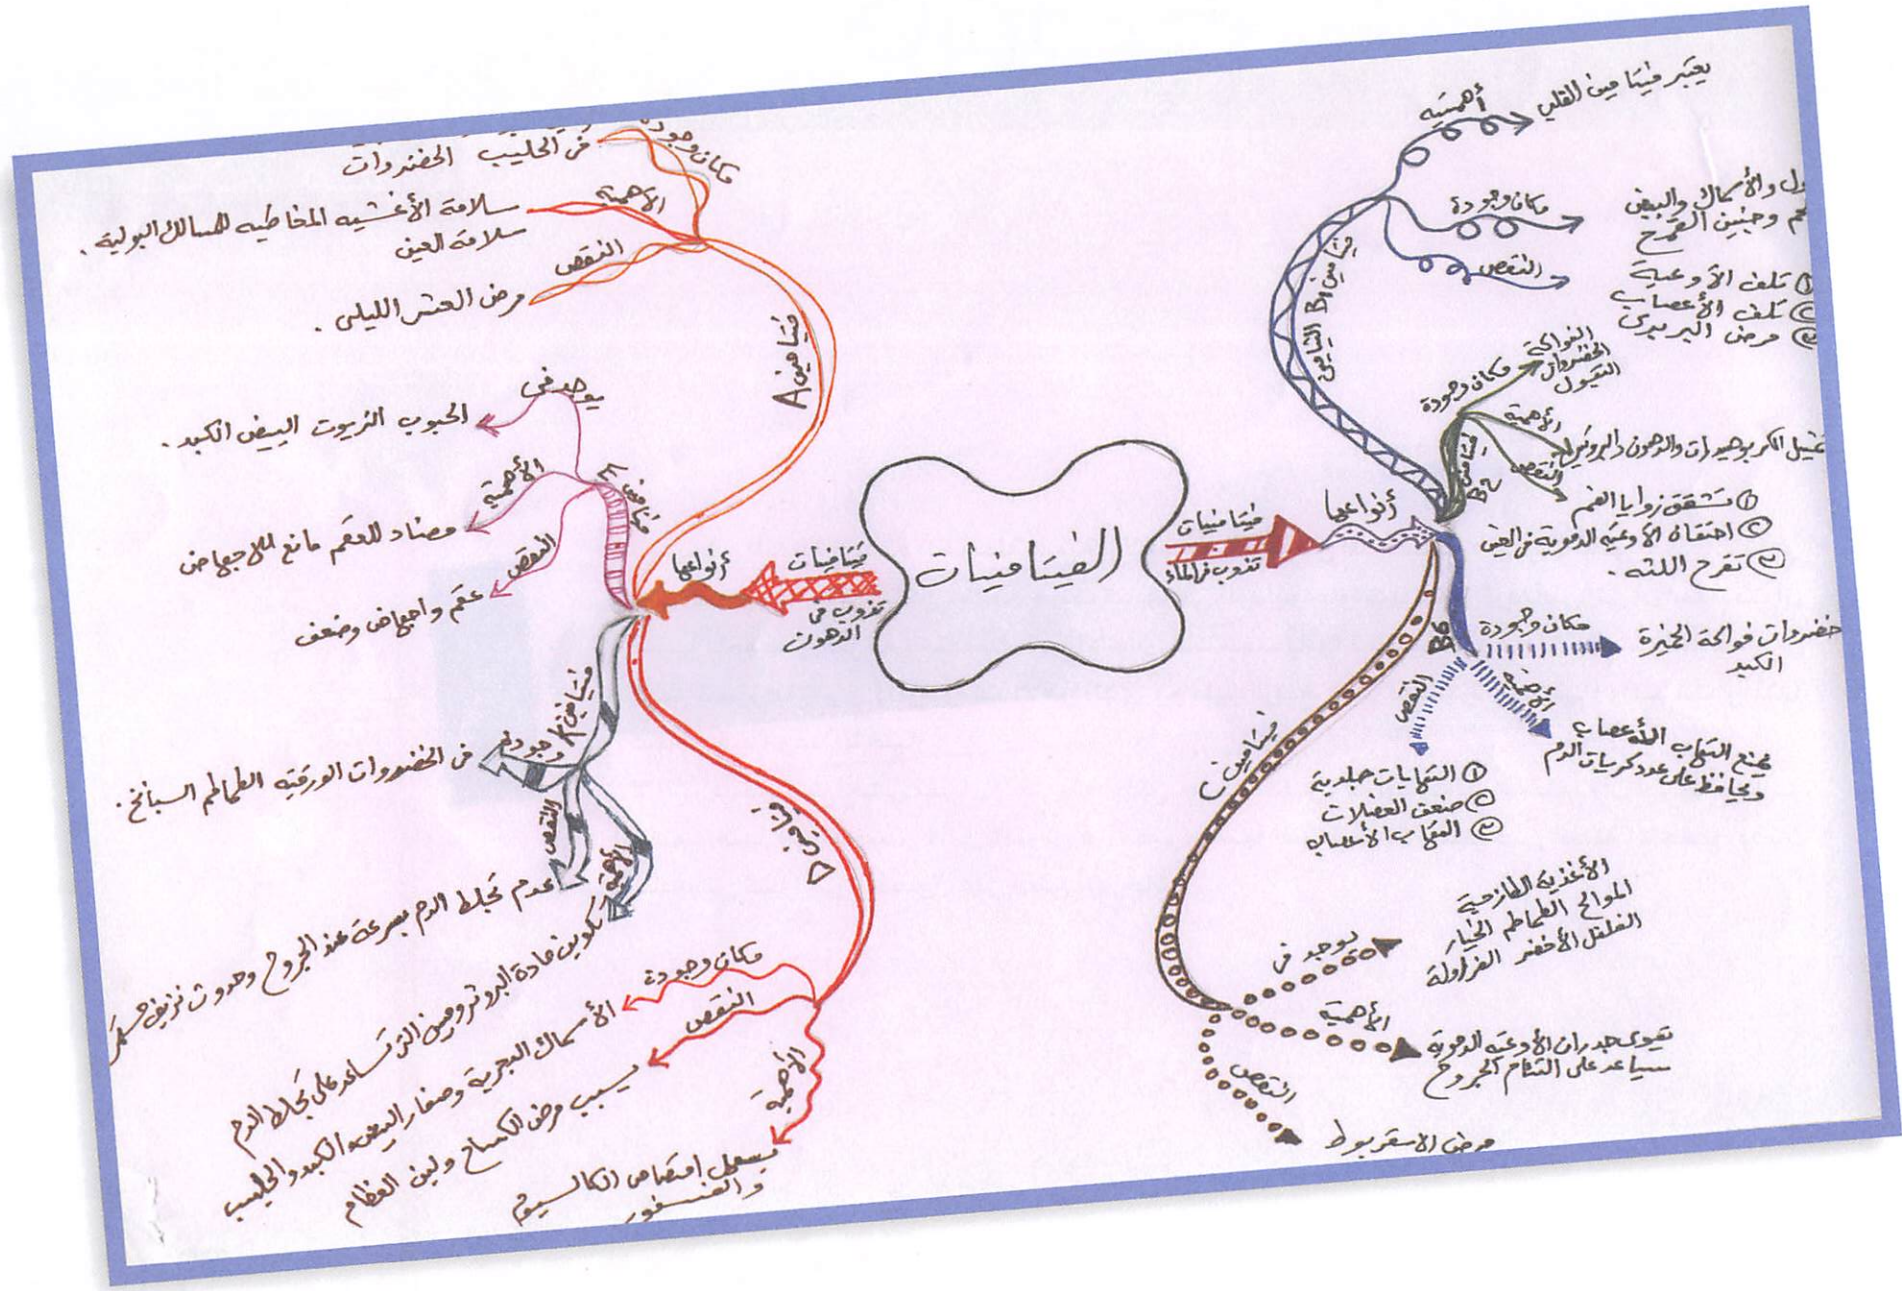 الفيتامينات
فيتامينات
تذوب في الماء
أنواعها
فيتامين B1 الثيامين
أهميته
يعتبر فيتامين القلب
مكان وجودة
ول والأسماك والبيض
وجنين القمح
النقص
① تلف الأوعية
② تلف الأعصاب
③ مرض البربري
فيتامين B2
مكان وجودة
الفواكة
الخضروات
البقول
الأهمية
الكربوهيدرات والدهون والبروتين
النقص
① تشقق زوايا الفم
② احتقان الأوعيه الدموية في العين
③ تقرح اللثه .
B6
مكان وجودة
خضروات فواكة الخميرة
الكبد
الأهمية
يمنع التهاب الأعصاب
ويحافظ على عدد كريات الدم
النقص
① التهابات جلدية
② ضعف العضلات
③ التهاب الأعصاب
فيتامين
يوجد في
الأغذية الطازجة
الموالح الطماطم الخيار
الفلفل الأخضر الفراولة
الأهمية
تقوى جدران الأوعيه الدموية
يساعد على التئام الجروح
النقص
مرض الاسقربوط
فيتامينات
تذوب في
الدهون
أنواعها
فيتامين A
مكان وجودة
في الحليب الخضروات
الأهمية
سلامة الأغشيه المخاطيه للمسالك البولية .
سلامة العين
النقص
مرض العشى الليلى .
فيتامين E
يوجد في
الحبوب الزيوت البيض الكبد .
الأهمية
مضاد للعقم مانع للاجهاض
النقص
عقم واجهاض وضعف
فيتامين K
وجودة
في الخضروات الورقيه الطماطم السبانخ .
النقص
عدم تجلط الدم بسرعة عند الجروح وحدوث نزيف مستمر
الأهمية
تكوين مادة البروثرومبين التي تساعد على تجلط الدم
فيتامين D
مكان وجودة
الأسماك البحرية وصفار البيض الكبد والحليب
النقص
يسبب مرض الكساح ولين العظام
الأهمية
يسهل امتصاص الكالسيوم
والفسفور